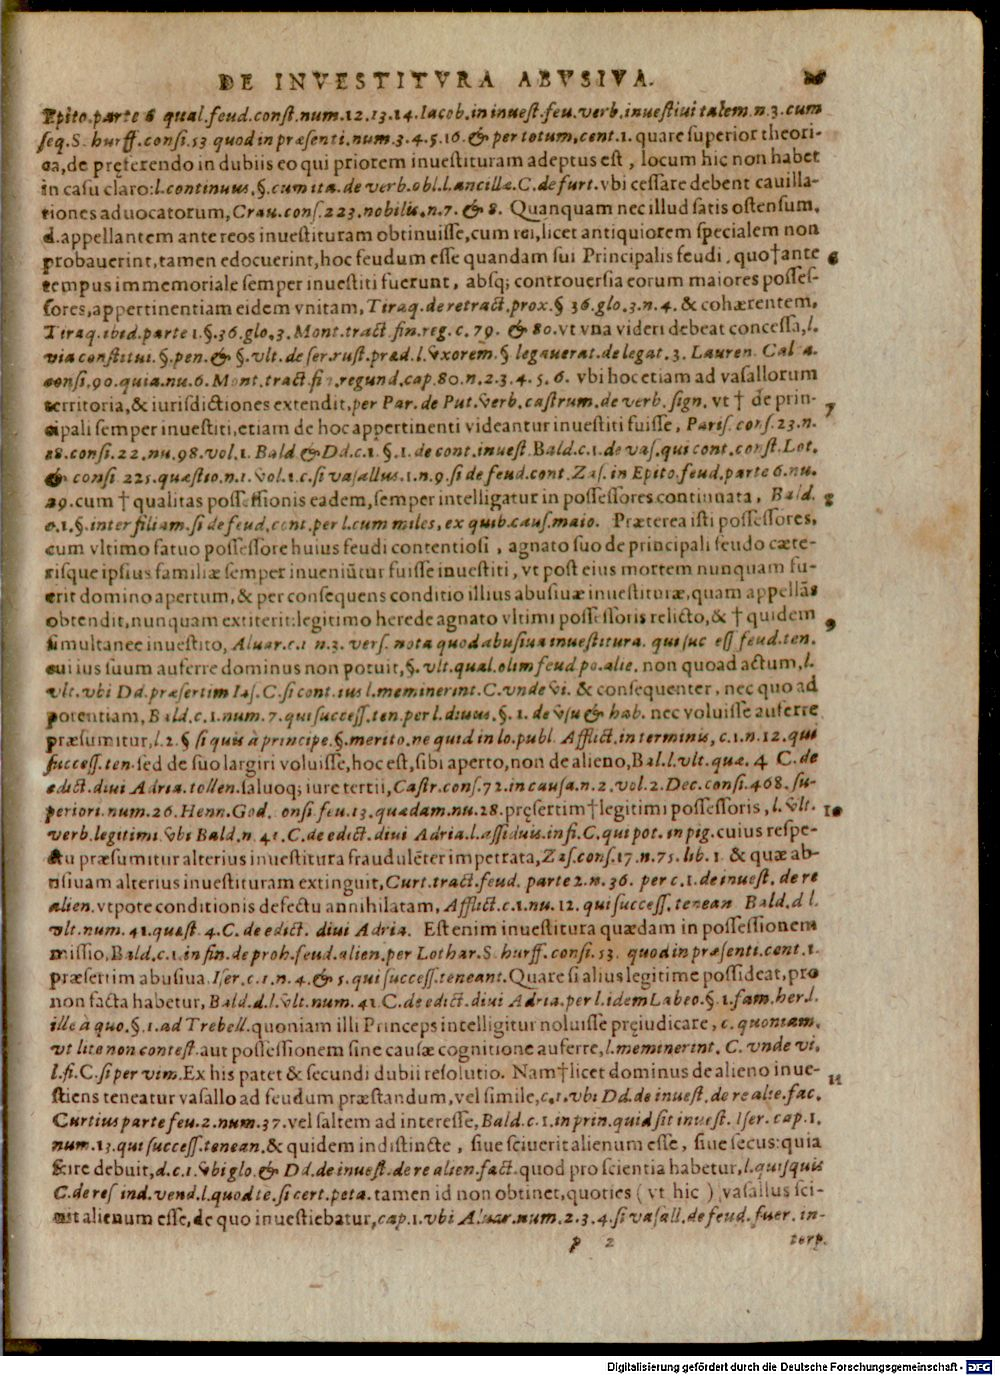 DE INVESTITVRA ABVSIVA.
Epito. parte 6 qual. feud. const. num. 12. 13. 14. Iacob. in inuest. feu. verb. inuestiui talem n. 3. cum
seq. S. hurff. consi. 53 quod in præsenti. num. 3. 4. 5. 16. & per totum, cent. 1. quare superior theori-
ca, de pręferendo in dubiis eo qui priorem inuestituram adeptus est, locum hic non habet
in casu claro: l. continuus, §. cum ita. de verb. obl. l. ancillæ. C. de furt. vbi cessare debent cauilla-
tiones aduocatorum, Crau. cons. 223. nobilis. n. 7. & 8. Quanquam nec illud satis ostensum,
d. appellantem ante reos inuestituram obtinuisse, cum rei, licet antiquiorem specialem non
probauerint, tamen edocuerint, hoc feudum esse quandam sui Principalis feudi, quo†ante 6
tempus immemoriale semper inuestiti fuerunt, absq; controuersia eorum maiores posses-
sores, appertinentiam eidem vnitam, Tiraq. de retract. prox. § 36. glo. 3. n. 4. & cohærentem,
Tiraq. ibid. parte 1. §. 36. glo. 3. Mont. tract. fin. reg. c. 79. & 80. vt vna videri debeat concessa, l.
via constitui. §. pen. & §. vlt. de ser. rust. præd. l. vxorem. § legauerat. de legat. 3. Lauren. Cal a.
consi. 90. quia. nu. 6. Mont. tract. fin. regund. cap. 80. n. 2. 3. 4. 5. 6. vbi hoc etiam ad vasallorum
territoria, & iurisdictiones extendit, per Par. de Put. verb. castrum. de verb. sign. vt † de prin- 7
cipali semper inuestiti, etiam de hoc appertinenti videantur inuestiti fuisse, Paris. cons. 23. n.
18. consi. 22. nu. 98. vol. 1. Bald. & Dd. c. 1. §. 1. de cont. inuest. Bald. c. 1. de vas. qui cont. const. Lot.
& consi 225. quæstio. n. 1. vol. 1. c. si vasallus. 1. n. 9. si de feud. cont. Zas. in Epito. feud. parte 6. nu.
29. cum † qualitas possessionis eadem, semper intelligatur in possessores continuata, Bald. 8
c. 1. §. inter filiam. si de feud. cont. per l. cum miles, ex quib. caus. maio. Præterea isti possessores,
cum vltimo fatuo possessore huius feudi contentiosi, agnato suo de principali feudo cæte-
risque ipsius familiæ semper inueniūtur fuisse inuestiti, vt post eius mortem nunquam fu-
erit domino apertum, & per consequens conditio illius abusiuæ inuestituræ, quam appellās
obtendit, nunquam extiterit: legitimo herede agnato vltimi possessoris relicto, & † quidem 9
simultanee inuestito, Aluar. c. 1 n. 3. vers. nota quod abusiua inuestitura. qui suc ess feud. ten.
cui ius suum auferre dominus non potuit, §. vlt. qual. olim feud. po. alie. non quoad actum, l.
vlt. vbi Dd. præsertim Ias. C. si cont. ius l. meminerint. C. vnde vi. & consequenter, nec quo ad
potentiam, Bald. c. 1. num. 7. qui success. ten. per l. diuus. §. 1. de vsu & hab. nec voluisse auferre
præsumitur, l. 2. § si quis à principe. §. merito. ne quid in lo. publ. Afflict. in terminis, c. 1. n. 12. qui
success. ten. sed de suo largiri voluisse, hoc est, sibi aperto, non de alieno, Bal. l. vlt. quæ. 4 C. de
edict. diui Adria. tollen. saluoq; iure tertii, Castr. cons. 72. in causa. n. 2. vol. 2. Dec. consi. 468. su-
periori. num. 26. Henn. God. onsi feu. 13. quædam. nu. 28. pręsertim†legitimi possessoris, l. vlt. 10
verb. legitimi. vbi Bald. n. 41. C. de edict. diui Adria. l. assiduis. in fi. C. qui pot. in pig. cuius respe-
ctu præsumitur alterius inuestitura fraudulēter impetrata, Zas. cons. 17. n. 75. lib. 1. & quæ ab-
usiuam alterius inuestituram extinguit, Curt. tract. feud. parte 2. n. 36. per c. 1. de inuest. de re
alien. vtpote conditionis defectu annihilatam, Afflict. c. 1. nu. 12. qui success. tenean Bald. d l.
vlt. num. 41. quæst. 4. C. de edict. diui Adria. Est enim inuestitura quædam in possessionem
missio, Bald. c. 1. in fin. de proh. feud. alien. per Lothar. S hurff. consi. 53. quod in præsenti. cent. 1.
præsertim abusiua. Iser. c. 1. n. 4. & 5. qui success. teneant. Quare si alius legitime possideat, pro
non facta habetur, Bald. d. l. vlt. num. 41. C. de edict. diui Adria. per l. idem Labeo. §. 1. fam. her. l.
ille à quo. §. 1. ad Trebell. quoniam illi Princeps intelligitur noluisse pręiudicare, c. quoniam.
vt lite non contest. aut possessionem sine causæ cognitione auferre, l. meminerint. C. vnde vi.
l. fi. C. si per vim. Ex his patet & secundi dubii resolutio. Nam†licet dominus de alieno inue- 11
stiens teneatur vasallo ad feudum præstandum, vel simile, c. 1. vbi Dd. de inuest. de re alie. fac.
Curtius parte feu. 2. num. 37. vel saltem ad interesse, Bald. c. 1. in prin. quid sit inuest. Iser. cap. 1.
num. 13. qui success. tenean. & quidem indistincte, siue sciuerit alienum esse, siue secus: quia
scire debuit, d. c. 1. vbi glo. & Dd. de inuest. de re alien. fact. quod pro scientia habetur, l. quisquis
C. de res ind. vend. l. quod te. si cert. peta. tamen id non obtinet, quoties (vt hic) vasallus sci-
uit alienum esse, de quo inuestiebatur, cap. 1. vbi Aluar. num. 2. 3. 4. si vasall. de feud. fuer. in-
p 2 terp.
Digitalisierung gefördert durch die Deutsche Forschungsgemeinschaft - DFG